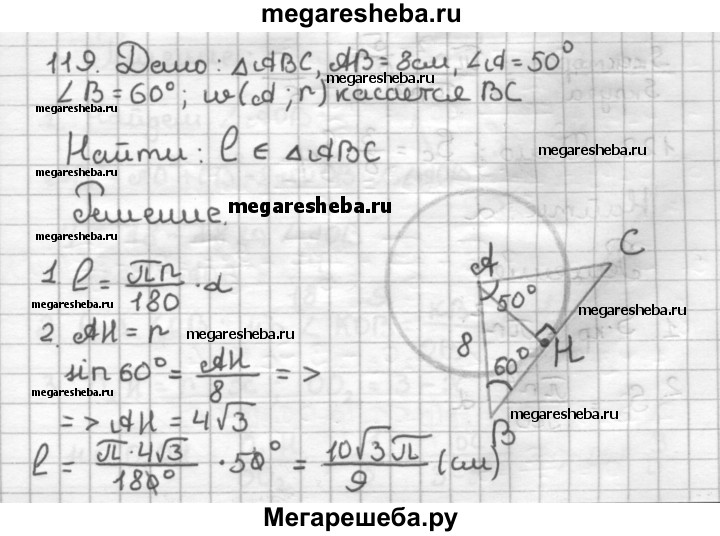 megaresheba.ru
119. Дано: △ABC, AB = 8см, ∠A = 50°
megaresheba.ru
∠B = 60°; w(A; r) касается BC
megaresheba.ru
Найти: l ∈ △ABC
megaresheba.ru
megaresheba.ru
Решение.
megaresheba.ru
1. l = πr/180 · α
megaresheba.ru
2. AH = r
megaresheba.ru
sin 60° = AH/8 =>
megaresheba.ru
=> AH = 4√3
l = π·4√3/180° · 50° = 10√3π/9 (см)
A
C
50°
megaresheba.ru
8
H
60°
megaresheba.ru
B
Мегарешеба.ру